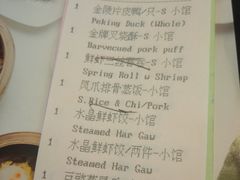 1 金陵片皮鸭/只-S 小馆
Peking Duck (Whole)
1 金牌叉烧酥-S 小馆
Barvecued pork puff
鲜虾三丝春卷-S 小馆
Spring Roll w Shrimp
1 凤爪排骨蒸饭-小馆
S.Rice & Chi/Pork
1 水晶鲜虾饺-小馆
Steamed Har Gaw
1 水晶鲜虾饺/两件-小馆
Steamed Har Gaw